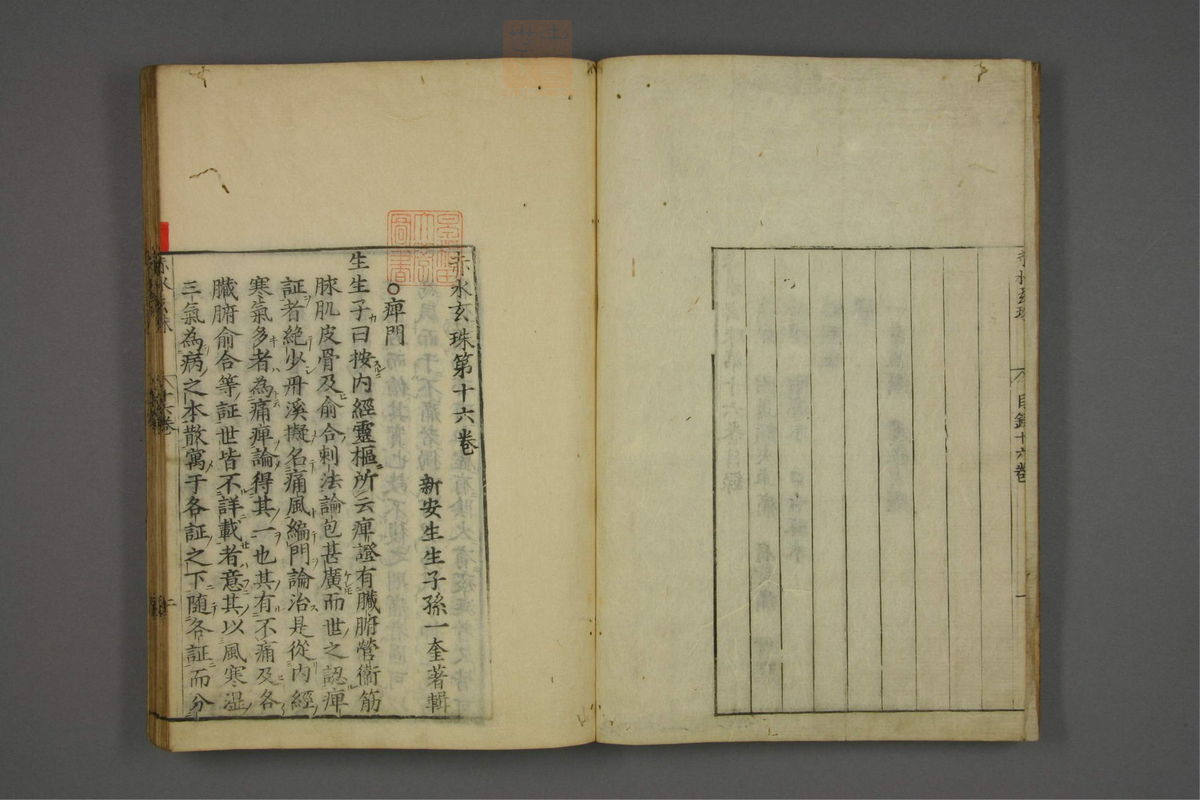 赤水玄珠
目録十六卷
赤水玄珠第十六卷
新安生生子孫一奎著輯
○痺門
生生子曰按内經靈樞所云痺證有臟腑營衞筋
脉肌皮骨及俞合刺法論包甚廣而世之認痺
証者絶少丹溪擬名痛風編門論治是從内經
寒氣多者為痛痺論得其一也其有不痛及各
臟腑俞合等証世皆不詳載者意其以風寒湿
三氣為病之本散寓于各証之下隨各証而分